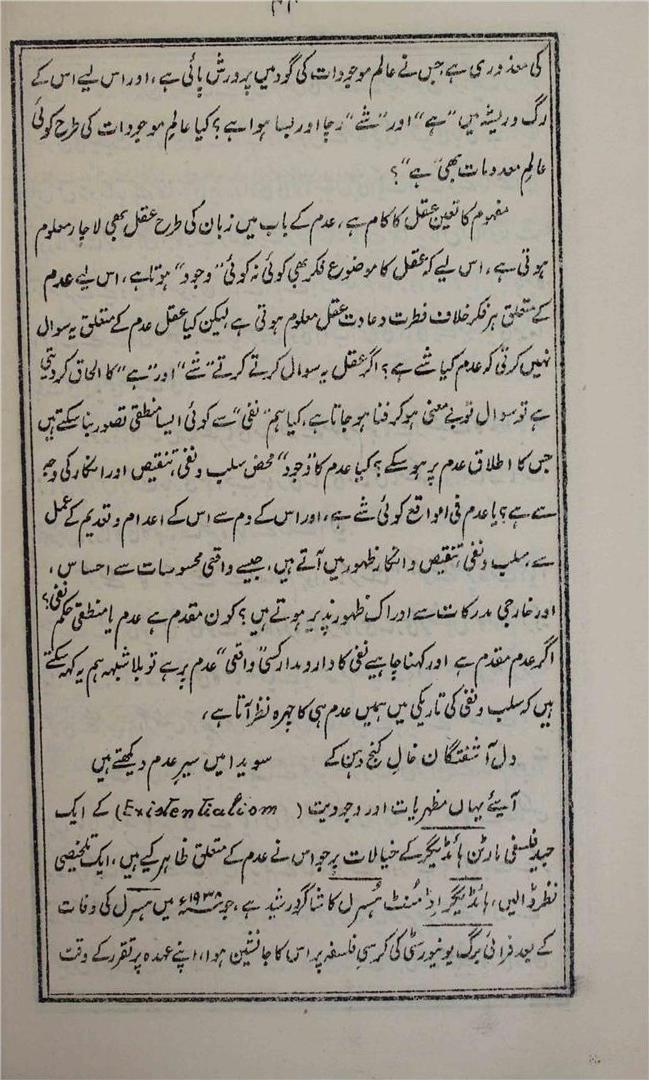 کی معذوری ہے جس نے عالم موجودات کی گود میں پرورش پائی ہے، اور اس لیے اس کے
رگ و ریشہ میں "ہے" اور "شے" رچا اور بسا ہوا ہے؟ کیا عالمِ موجودات کی طرح کوئی
عالمِ معدومات بھی "ہے"؟
مفہوم کا تعین عقل کا کام ہے، عدم کے باب میں زبان کی طرح عقل بھی لاچار معلوم
ہوتی ہے، اس لیے کہ عقل کا موضوعِ فکر بھی کوئی نہ کوئی "وجود" ہوتا ہے، اس لیے عدم
کے متعلق ہر فکر خلاف فطرت و عادت عقل معلوم ہوتی ہے لیکن کیا عقل عدم کے متعلق یہ سوال
نہیں کرتی کہ عدم کیا شے ہے؟ اگر عقل یہ سوال کرتے کرتے "شے" اور "ہے" کا الحاق کر دیتی
ہے تو سوال تو بے معنی ہو کر فنا ہو جاتا ہے، کیا ہم "نفی" سے کوئی ایسا منطقی تصور بنا سکتے ہیں
جس کا اطلاق عدم پر ہو سکے؟ کیا عدم کا "وجود" محض سلب و نفی، تنقیص اور انکار کی وجہ
سے ہے؟ یا عدم فی الواقع کوئی شے ہے، اور اس کے دم سے اس کے اعدام و تعدیم کے عمل
سے، سلب و نفی، تنقیص و انکار ظہور میں آتے ہیں، جیسے واقعی محسوسات سے احساس،
اور خارجی مدرکات سے ادراک ظہور پذیر ہوتے ہیں؟ کون مقدم ہے عدم یا منطقی حکم نفی؟
اگر عدم مقدم ہے اور کہنا چاہیے نفی کا دارومدار کسی "واقعی" عدم پر ہے تو بلا شبہ ہم یہ کہہ سکتے
ہیں کہ سلب و نفی کی تاریکی میں ہمیں عدم ہی کا چہرہ نظر آتا ہے،
دل آشفتگان خالِ کنج دہن کے سویدا میں سیرِ عدم دیکھتے ہیں
آیئے یہاں مظہریات اور وجودیت (Existentialiom) کے ایک
جید فلسفی مارٹن ہائڈیگر کے خیالات پر جو اس نے عدم کے متعلق ظاہر کیے ہیں، ایک تلخیصی
نظر ڈالیں، ہائڈیگر اڈمنٹ ہسرل کا شاگرد رشید ہے، جو ۱۹۳۸ء میں ہسرل کی وفات
کے بعد فرائی برگ یونیورسٹی کی کرسیِ فلسفہ پر اس کا جانشین ہوا، اپنے عہدہ پر تقرر کے وقت